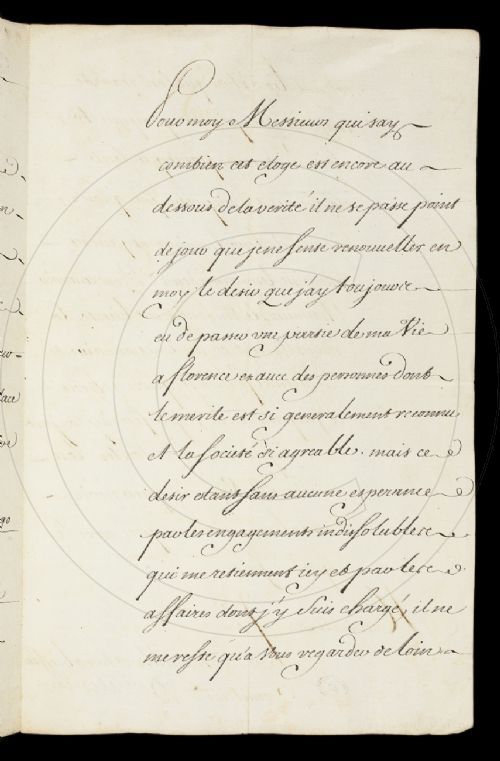 Pour moy Messieurs qui say
combien cet eloge est encore au
dessous de la verité il ne se passe point
de jour que je ne sente renouveller en
moy le desir que j'ay toujours
eu de passer une partie de ma Vie
a florence et avec des personnes dont
le merite est si generalement reconnu
et la société si agreable. mais ce
desir etant sans aucune esperance
par les engagements indissolubles
qui me retiennent icy et par les
affaires dont j'y suis chargé, il ne
me reste qu'a vous regarder de loin